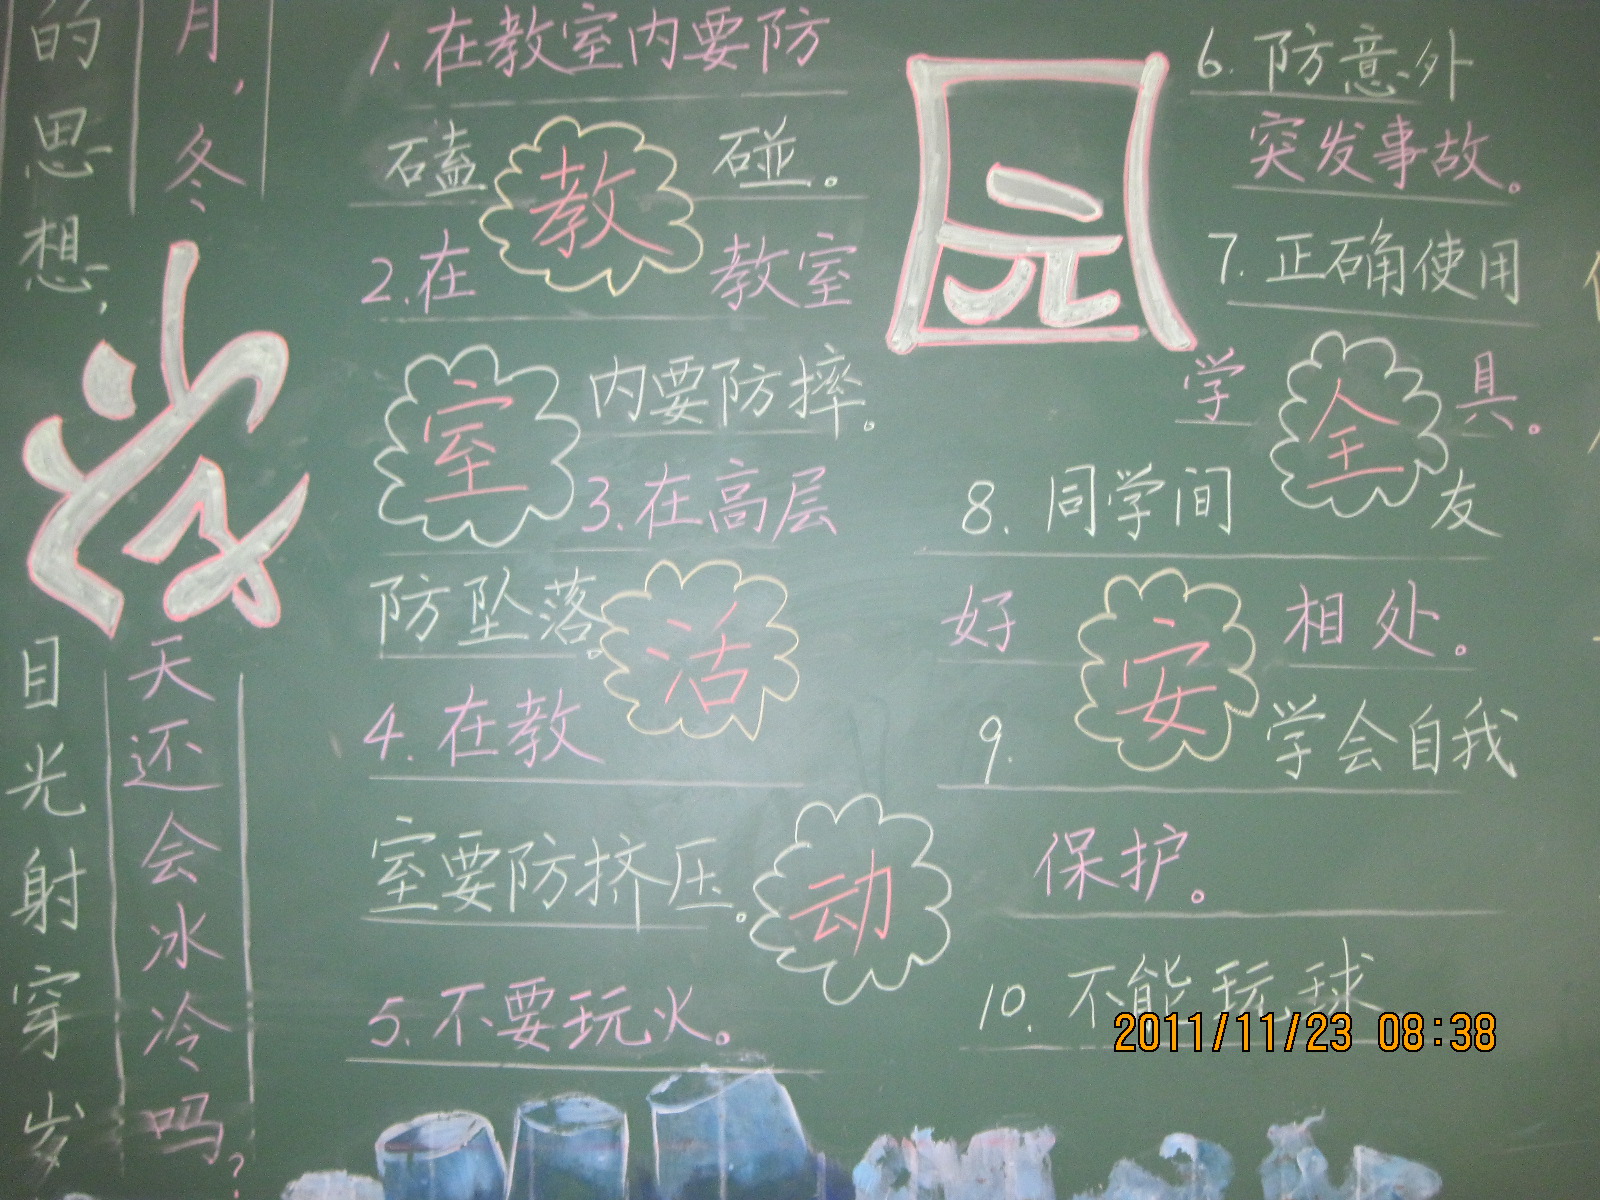 的思想，
目光射穿岁
月，冬
天还会冰冷吗？
学
园
1.在教室内要防
磕碰。
2.在教室
内要防摔。
3.在高层
防坠落。
4.在教
室要防挤压。
5.不要玩火。
教
室
活
动
6.防意外
突发事故。
7.正确使用
学具。
8.同学间友
好相处。
9.学会自我
保护。
10.不能玩球
全
安
2011/11/23 08:38